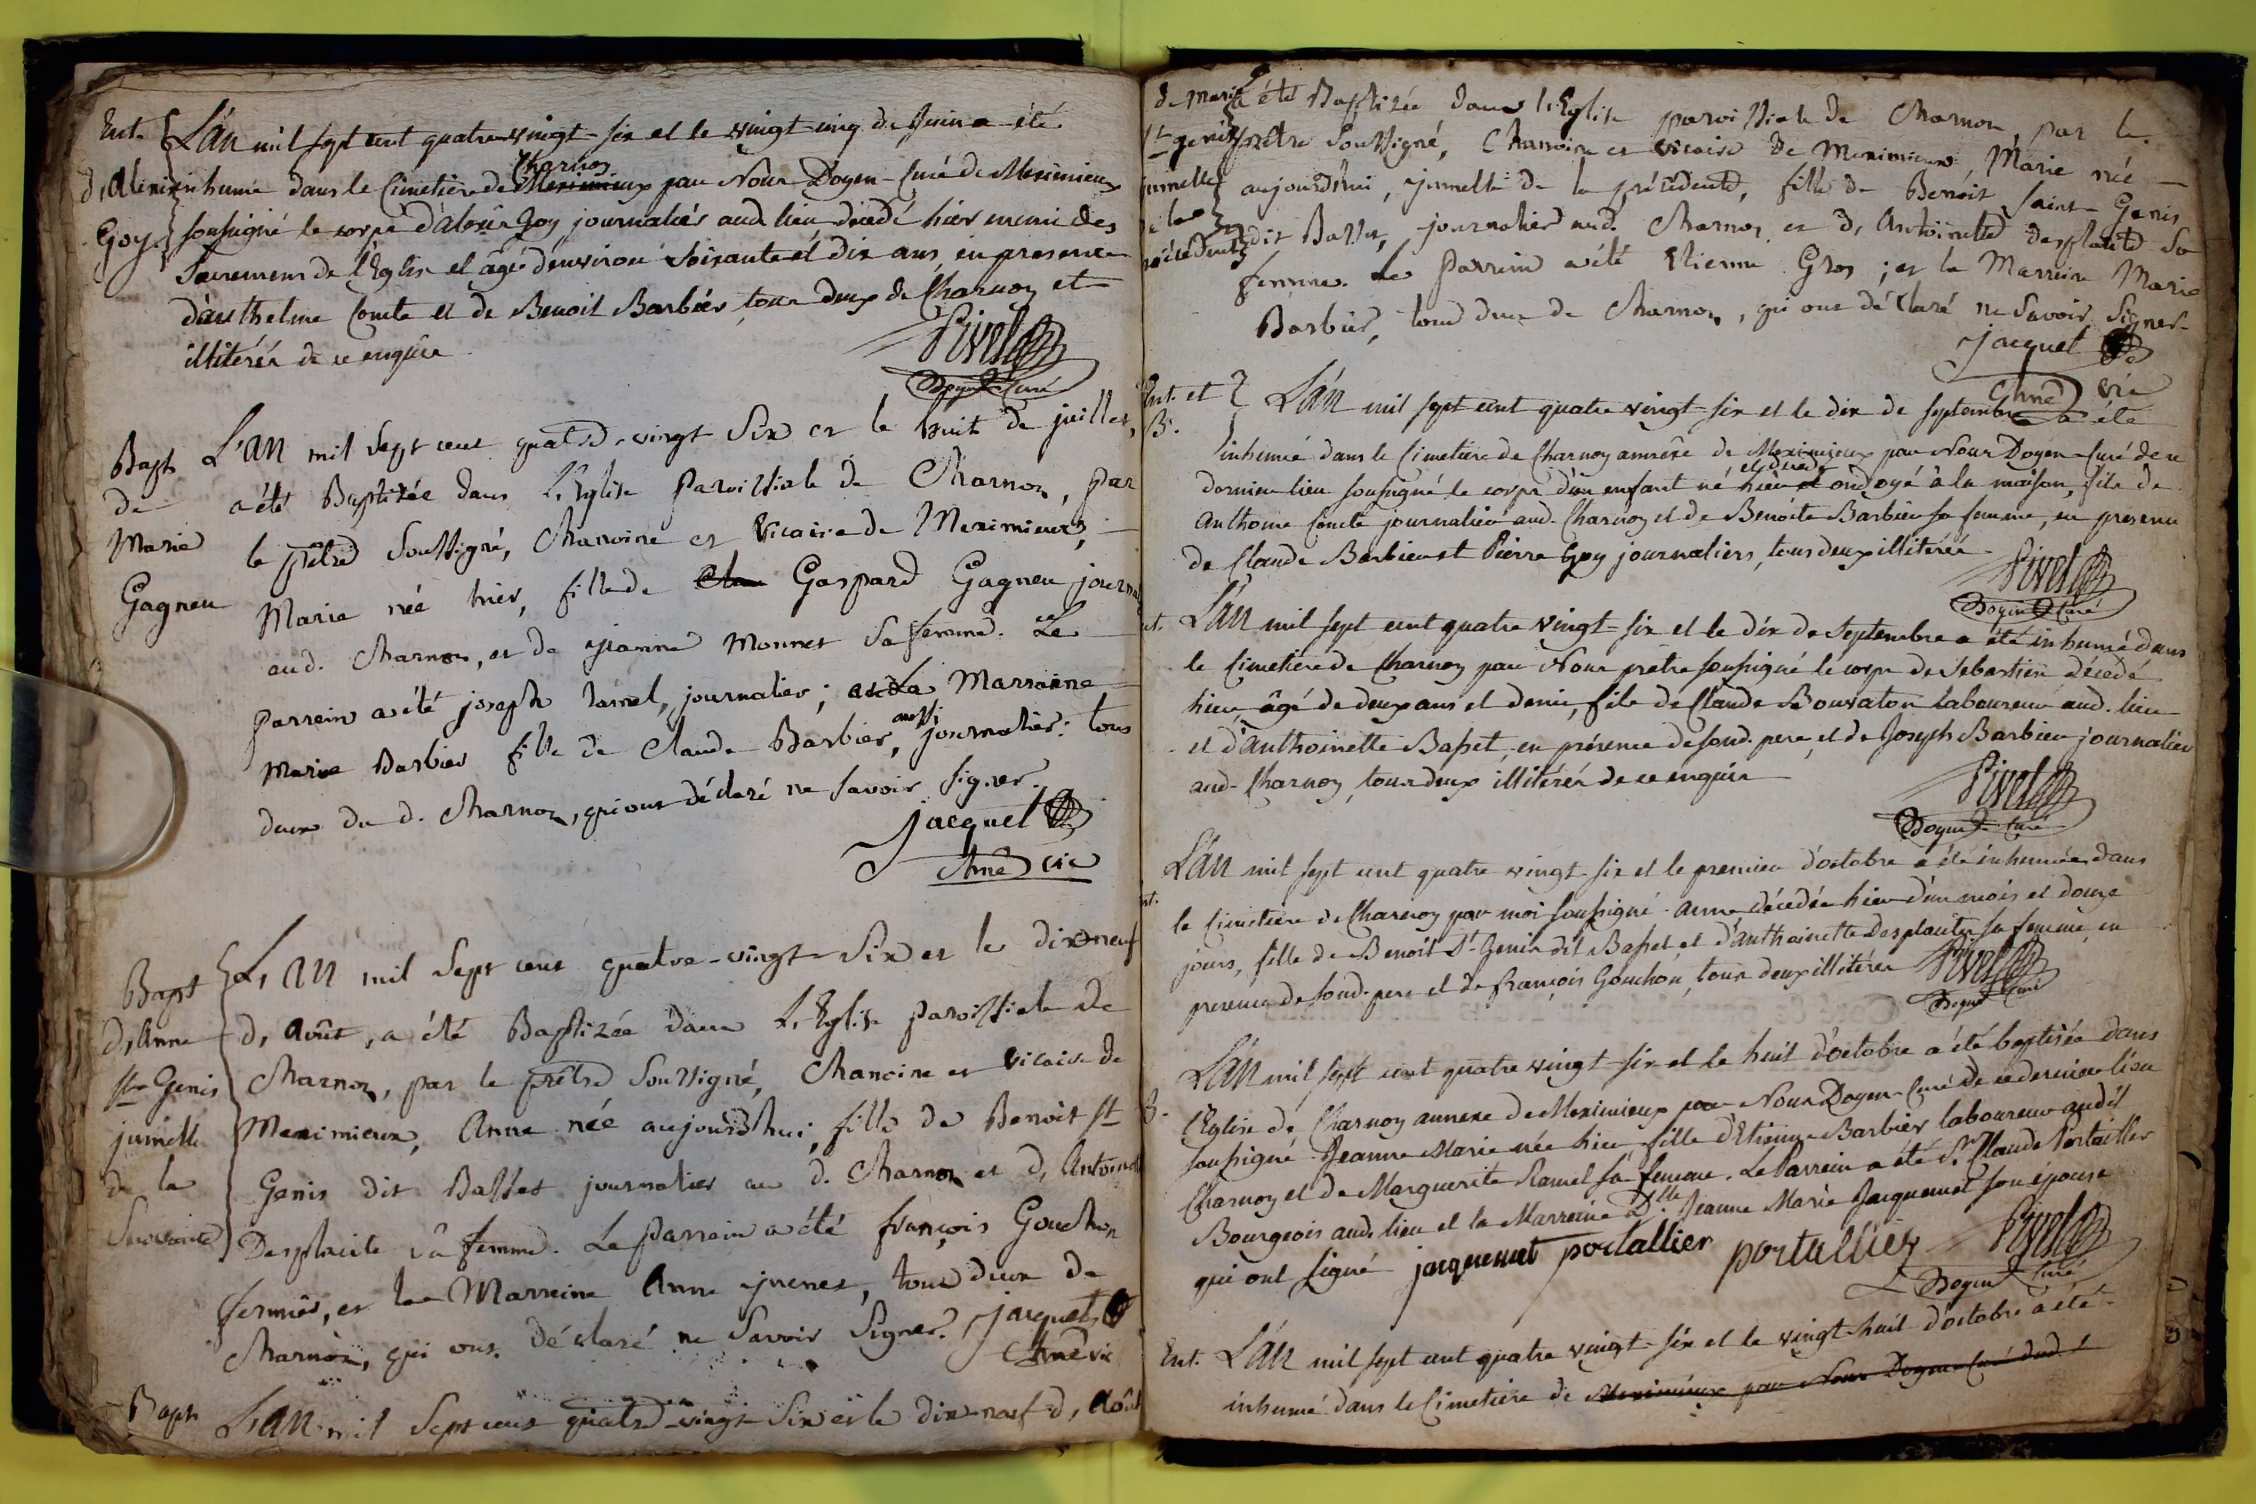 Ent.
d'Alexis
Goy
L'an mil sept cent quatre vingt-six et le vingt cinq de Juin a été
inhumé dans le Cimetiere de Meximieux Charnoz par Nous Doyen-Curé de Meximieux
soussigné le corps d'Alexis Goy journalier aud. lieu, décédé hier muni des
Sacremens de l'Eglise et âgé d'environ soixante et dix ans, en presence
d'Anthelme Comte et de Benoit Barbier, tous deux de Charnoz et
illitérés de ce enquis
Pivet
Doyen Curé
Bapt
de
Marie
Gagneu
L'an mil sept cent quatre-vingt six et le huit de juillet,
a été Baptisée dans L'Eglise Paroissiale de Charnoz, par
le prêtre Soussigné, Chanoine et Vicaire de Meximieux,
Marie née hier, fille de Clau Gaspard Gagneu journ
aud. Charnoz, et de jeanne Monnet Sa femme. Le
parrein a été joseph ramel, journalier; et La Marraine
Marie Barbier fille de Claude Barbier, aussi journalier: tous
deux du d. Charnoz, qui ont déclaré ne savoir signer.
Jacquet
Chne vic
Bapt
d'Anne
st Genis
jumelle
de la
Suivante
L'an mil Sept cent quatre-vingt-Six et le dix neuf
d'Août, a été Baptisée dans L'Eglise paroissiale de
Charnoz, par le prêtre Soussigné, Chanoine et Vicaire de
Meximieux, Anne née aujourd'hui, fille de Benoit st
Genis dit Basset journalier au d. Charnoz et d'Antoinette
Desplaite sa femme. Le parrein a été françois Gouchon
fermier, et la Marreine Anne juenet, tous deux de
Charnoz, qui ont déclaré ne Savoir Signer. Jacquet
Chne vic
Bapt
L'an mil Sept cent quatre vingt Six et le dix-neuf d'Août
de Marie
st genis
jumelle
de la
précédente
a été Baptizée dans l'Eglise paroissiale de Charnoz, par le
prêtre Soussigné, Chanoine et vicaire de Meximieux Marie née
aujourd'hui, jumelle de la précédente, fille de Benoit saint Genis
dit Basset, journalier aud. Charnoz et d'Antoinette desplaite Sa
femme. Le Parrein a été Etienne Gros; et la Marreine Marie
Barbier, tous deux de Charnoz, qui ont déclaré ne Savoir Signer.
Jacquet
Chne vic
Ent. et
B.
L'an mil sept cent quatre vingt-six et le dix de septembre a été
inhumé dans le Cimetiere de Charnoz annexe de Meximieux par Nous Doyen-Curé de ce
dernier lieu soussigné le corps d'un enfant né hier et et décédé ondoyé à la maison, fils de
Anthome Comte journalier aud. Charnoz et de Benoite Barbier sa femme, en presence
de Claude Barbier et Pierre Goy journaliers, tous deux illitérés
Pivet
Doyen Curé
nt.
L'an mil sept cent quatre vingt-six et le dix de Septembre a été inhumé dans
le Cimetiere de Charnoz par Nous prêtre soussigné le corps de Sebastien décédé
hier, âgé de deux ans et demi, fils de Claude Bouvaton laboureur aud. lieu
et d'Anthoinette Basset, en présence de sond. pere, et de Joseph Barbier journalier
aud. Charnoz, tous deux illitérés de ce enquis
Pivet
Doyen Curé
nt.
L'an mil sept cent quatre vingt-six et le premier d'octobre a été inhumée dans
le Cimetiere de Charnoz par moi soussigné Anne décédée hier d'un mois et douze
jours, fille de Benoit St Genis dit Basset et d'anthoinette Desplaite sa femme, en
presence de sond. pere et de François Gouchon, tous deux illitérés
Pivet
Doyen Curé
B.
L'an mil sept cent quatre vingt-six et le huit d'octobre a été baptisée dans
l'Eglise de Charnoz annexe de Meximieux par Nous Doyen-Curé de ce dernier lieu
soussigné Jeanne Marie née hier, fille d'Etienne Barbier laboureur audit
Charnoz et de Marguerite Ramel sa femme. Le Parrein a été Sr. Claude Portallier
Bourgeois aud. lieu et la Marreine Dlle. Jeanne Marie Jacquemet son épouse
qui ont signé jacquemet portallier portallier
Pivet
Doyen Curé
Ent.
L'an mil sept cent quatre vingt-six et le vingt-huit d'octobre a été
inhumé dans le Cimetiere de Meximieux par Nous Doyen Curé dud.